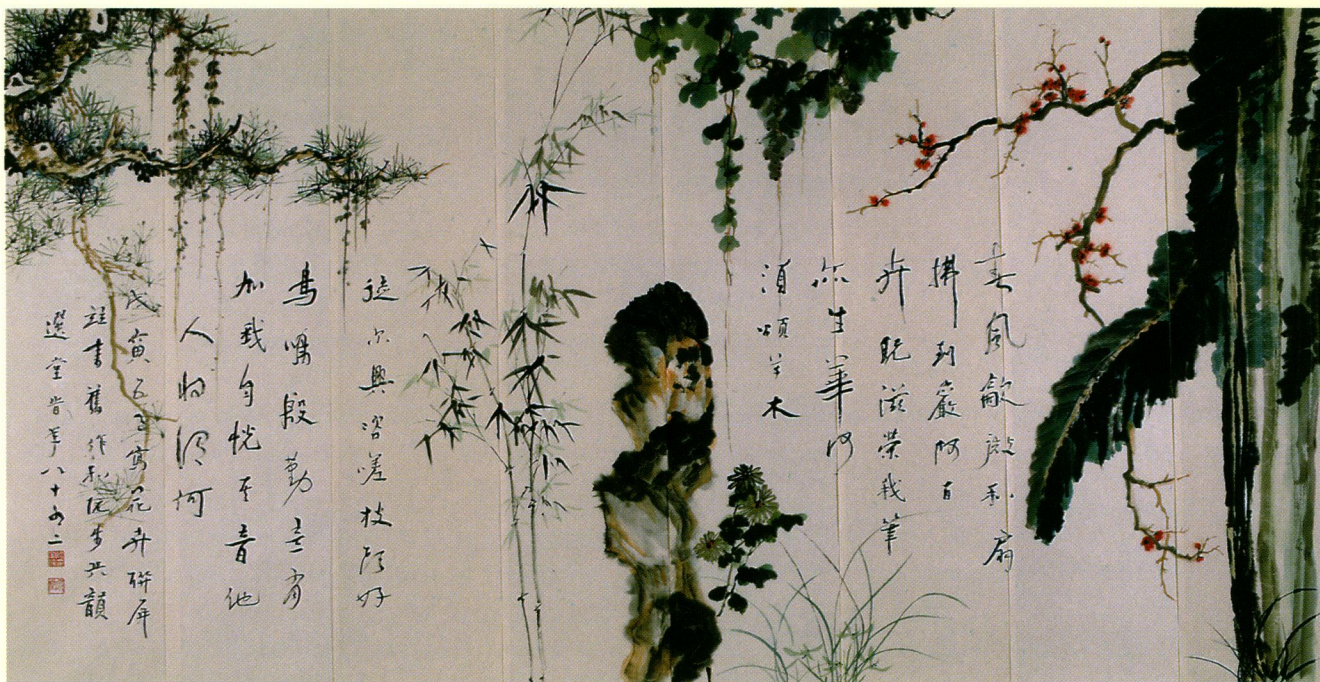 春風歙微和扇
拂到巖阿百
卉既滋榮我筆
亦生華何
須頌草木
徒尔興咨嗟枝頭好
鳥殷勤意有
加我自悅至音他
人將謂何
戊寅五月寫花卉聯屏
並書舊作和阮步兵韻
選堂時年八十有二